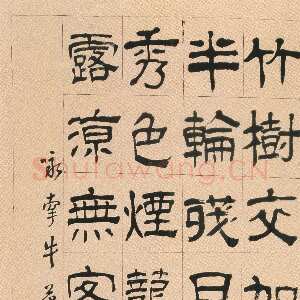 竹樹交加
半輪殘月
秀色煙籠
露涼無客
咏牽牛
Shufawang.CN